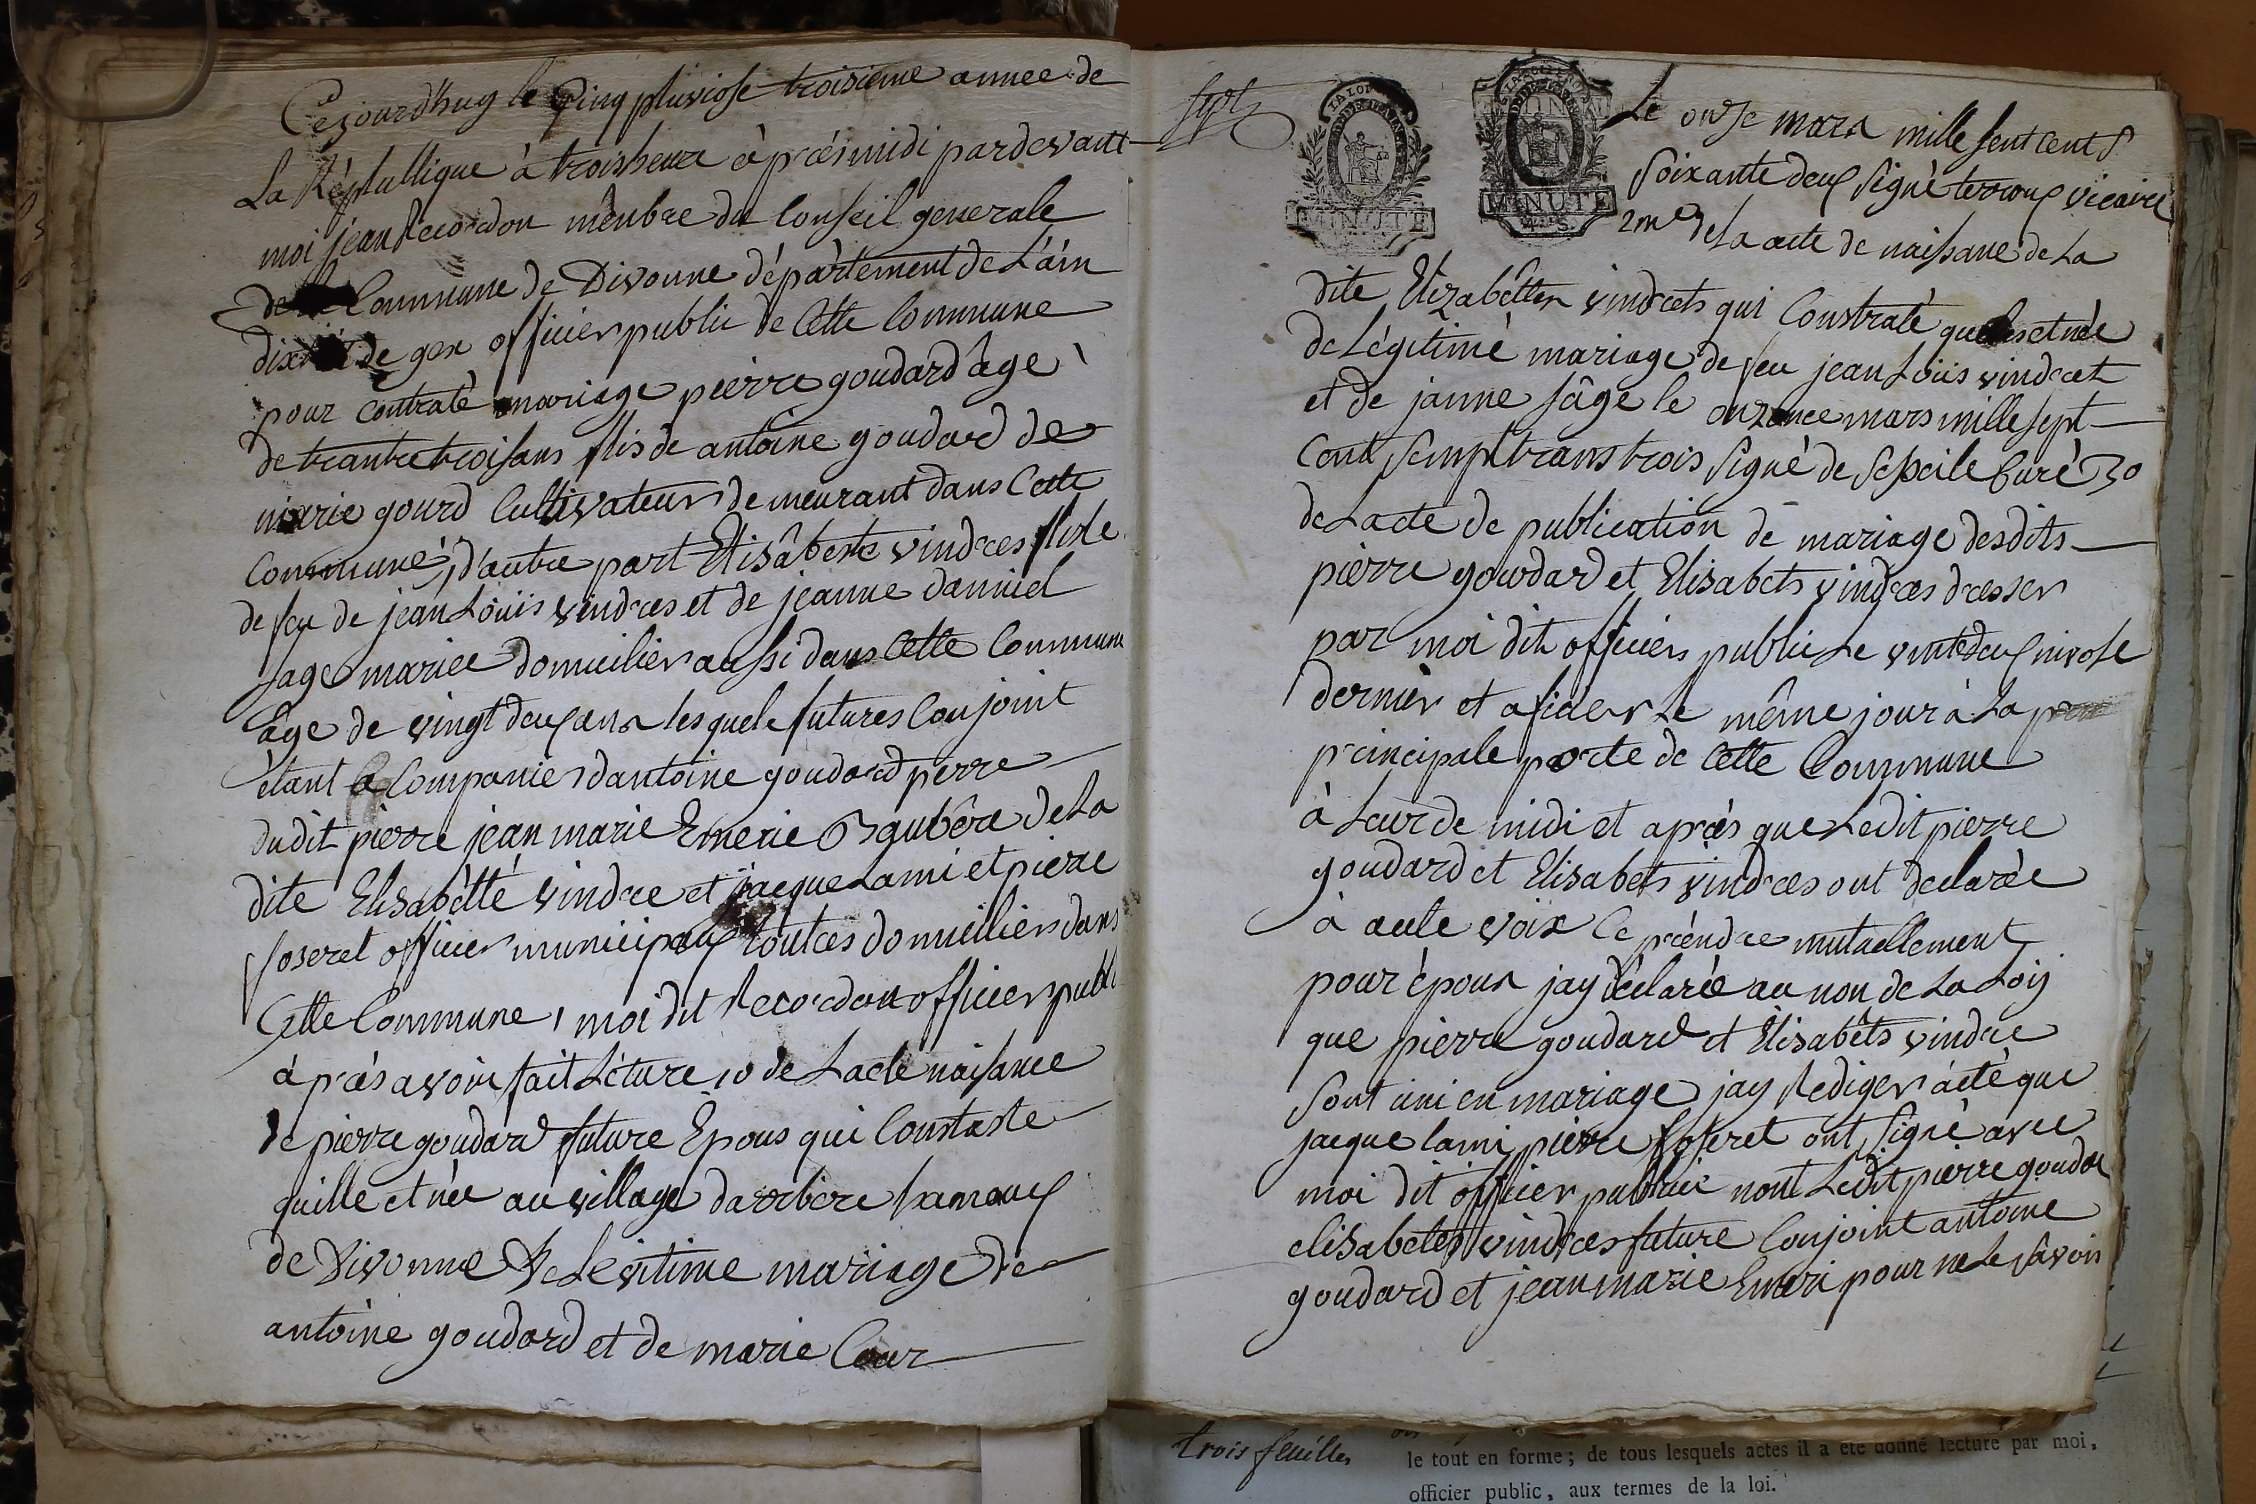 Cejourd'huy le Cinq pluviose troisieme annee de
La Républlique à troisheur à prés midi pardevant
moi jean Recordon mênbre du Conseil generale
de Commune de Divonne département de L'ain
de gex officier public de Cette Commune
pour contraté mariage pierre goudard âgé
de trantre troisans flis de antoine goudard de
marie gourd Cultivateur de meurant dans Cette
Commune, d'autre part Elisâbeste vindres flisle
de feu de jean Loüis vindres et de jeanne danniel
sage mariee domicilier aussi dans Cette Commune
âge de vingt deuf ans les quele futures Conjoint
étant a Companier dantoine goudard perre
dudit pierre jean marie Emerie De La
dite Elisabètte vindre et jacque Lami et piere
soseret officier municipauf toutes domicilier dans
Cette Commune, moi dit Recordon officier publi
à prés avoir fait Lécture 10 de Lacte naisance
de pierre goudard future Epous qui Constaste
quille et née au village darbere hamauf
de Divonne de Levitime mariage de
antoine goudard et de marie Cour
LA LOI
MINUTE
MINUTE
Le onse mars mille sent cent
Soixante deuf Signé vicaire
2me de La acte de naissane de La
dite Elizabètter vindrets qui Constraté quelles et née
de Légitimé mariage de feu jean Loüis vindret
et de janne sâge le mars mille sept
Cent trans trois Signé de Curé 30
de Lacte de publication de mariage desdits
pierre goudard et Elisabets vindres dresser
par moi dit officier public Le vinte deuf nivose
dernier et aficer Le même jour à La
principale porte de Cette Commune
à Leur de midi et aprés que Ledit pierre
goudard et Elisabets vindres ont déclarée
à aute voix Ce préndre mutuellement
pour épous jay déclarée au non de La Loÿ
que pierre goudard et Elisabêts vindre
Sont uni en mariage jay Rediger àcte que
jacque lami pierre soseret ont Signé avec
moi dit officier public nont Ledit pierre goudar
elisabetes vindres future Conjoint antoine
goudard et jean marie Emeri pour ne Le sàvoir
trois feuilles
le tout en forme ; de tous lesquels actes il a été donné lecture par moi,
officier public, aux termes de la loi.